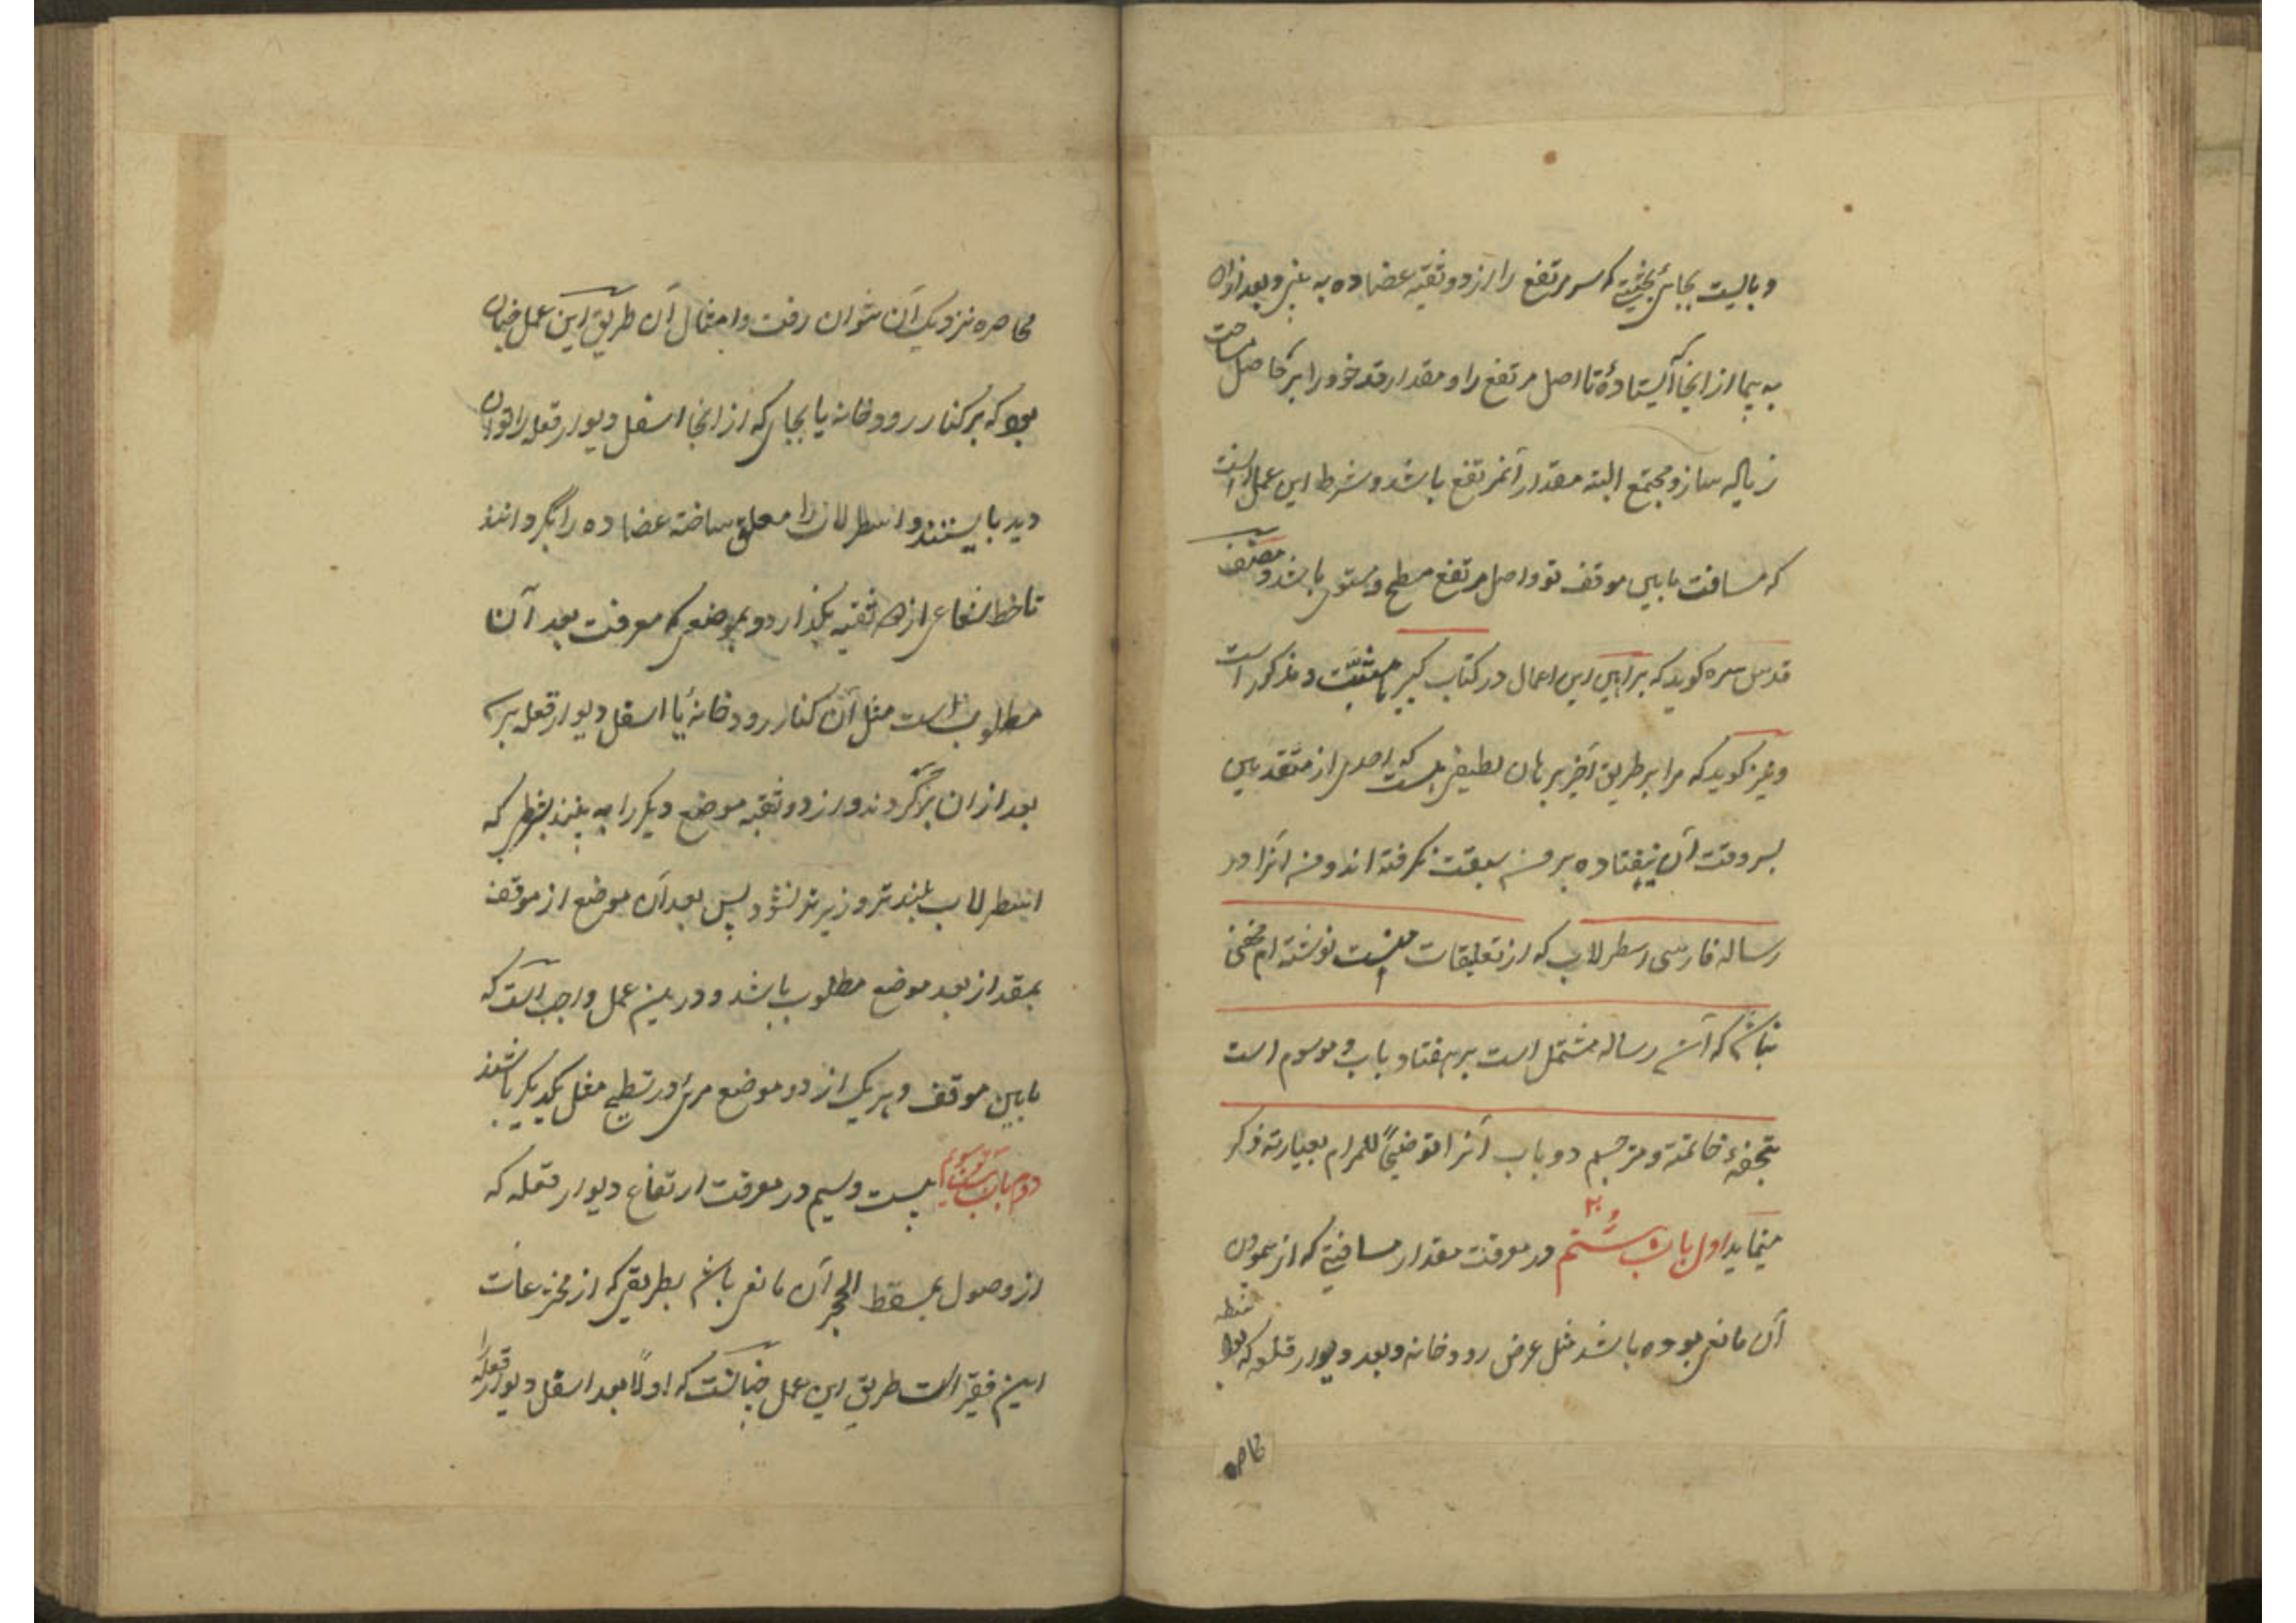 و بالیست بجائی بحیثیتی که سر مرتفع را از دو ثقبه عضاده به بینی و بعد ازان
به پیما از انجا که ایستادهٔ تا اصل مرتفع را و مقدار قد خود را بر حاصل مساحت
زیاله ساز و مجتمع البته مقدار آنمرتفع باشد و شرط این عمل انست
که مسافت مابین موقف تو و اصل مرتفع مسطح و مستوی باشد و مصنف
قدس سره کوید که براهین این اعمال در کتاب کبیر ما مثبت و مذکور است
و نیز کوید که مرا بر طریق آخیر برهان لطیفی هست که احدی از متقدمین
بسر وقت آن نیفتاده بر من سبقت نکرفته اند و من انرا در
رساله فارسی اسطرلاب که از تعلیقات منست نوشته ام مخفی
نباشد که آن رساله مشتمل است بر هفتاد باب و موسوم است
بتحفهٔ خاتمته و مترجم دو باب آنرا توضیحاً للمرام بعبارته ذکر
مینماید اول باب شستم در معرفت مقدار مسافتی که از پیمودن
آن مانعی بوده باشد مثل عرض رودخانه و بعد دیوار قلعه که بواسطه
محاصره
محاصره نزدیک آن نتوان رفت و امثال آن طریق این عمل چنان
بود که بر کنار رودخانه یا بجای که از انجا اسفل دیوار قلعه را توان
دید بایستند و اسطرلاب را معلق ساخته عضاده را بگردانند
تا خط شعاعی از هر دو ثقبه بگذارد و بموضعی که معرفت بعد آن
مطلوب است مثل آن کنار رودخانه یا اسفل دیوار قلعه برسد
بعد ازان برگردند و از دو ثقبه موضع دیگر را به بینند بشرطی که
اسطرلاب بلند تر و زیر تر نشود پس بعد آن موضع از موقف
بمقدار بعد موضع مطلوب باشد و درین عمل واجب است که
مابین موقف و هر یک از دو موضع مرئی در تسطیح مثل یکدیگر باشند
دوم باب شست و سیوم بیست و سیم در معرفت ارتفاع دیوار قلعه که
از وصول بمسقط الحجر آن مانعی باشد بطریقی که از مخترعات
این فقیر است طریق این عمل چنانست که اولاً بعد اسفل دیوار قلعه را